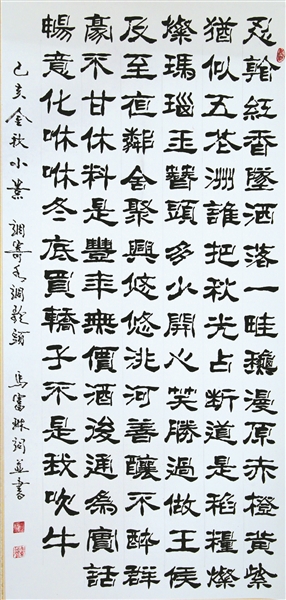 紅香墜洒落一畦穠漫原赤橙黃紫
猶似五花洲誰把秋光占斷道是稻糧燦
燦瑪瑙玉簪頭多少開心笑勝過做王侯
至夜鄰舍聚興悠悠洮河善釀不醉群
豪不甘休料是豐年無價酒後通為實話
暢意化咻咻冬底買轎子不是我吹牛
己亥金秋小景 調寄水調歌頭 馬富詞並書